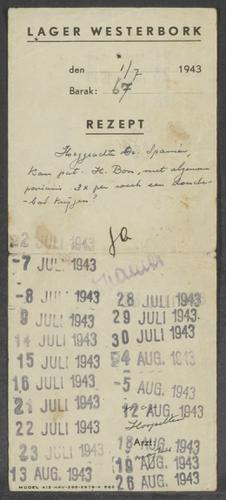 LAGER WESTERBORK
den 1/7 1943
Barak: 67
REZEPT
Hooggeachte Dr. Spanier,
Kan pat. H. Bon, met algemeen
3x per week een douche-
bad krijgen?
Ja
2 JULI 1943
-7 JULI 1943
-8 JULI 1943
9 JULI 1943
14 JULI 1943
15 JULI 1943
16 JULI 1943
21 JULI 1943
22 JULI 1943
23 JULI 1943
13 AUG. 1943
28 JULI 1943
29 JULI 1943
30 JULI 1943
-4 AUG. 1943
-5 AUG. 1943
12 AUG. 1943
18 AUG. 1943
Arzt:
19 AUG. 1943
26 AUG. 1943